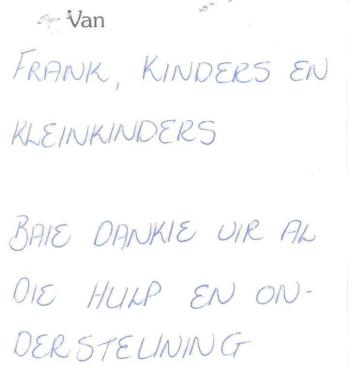 Van
FRANK, KINDERS EN
KLEINKINDERS
BAIE DANKIE VIR AL
DIE HULP EN ON-
DERSTEUNING